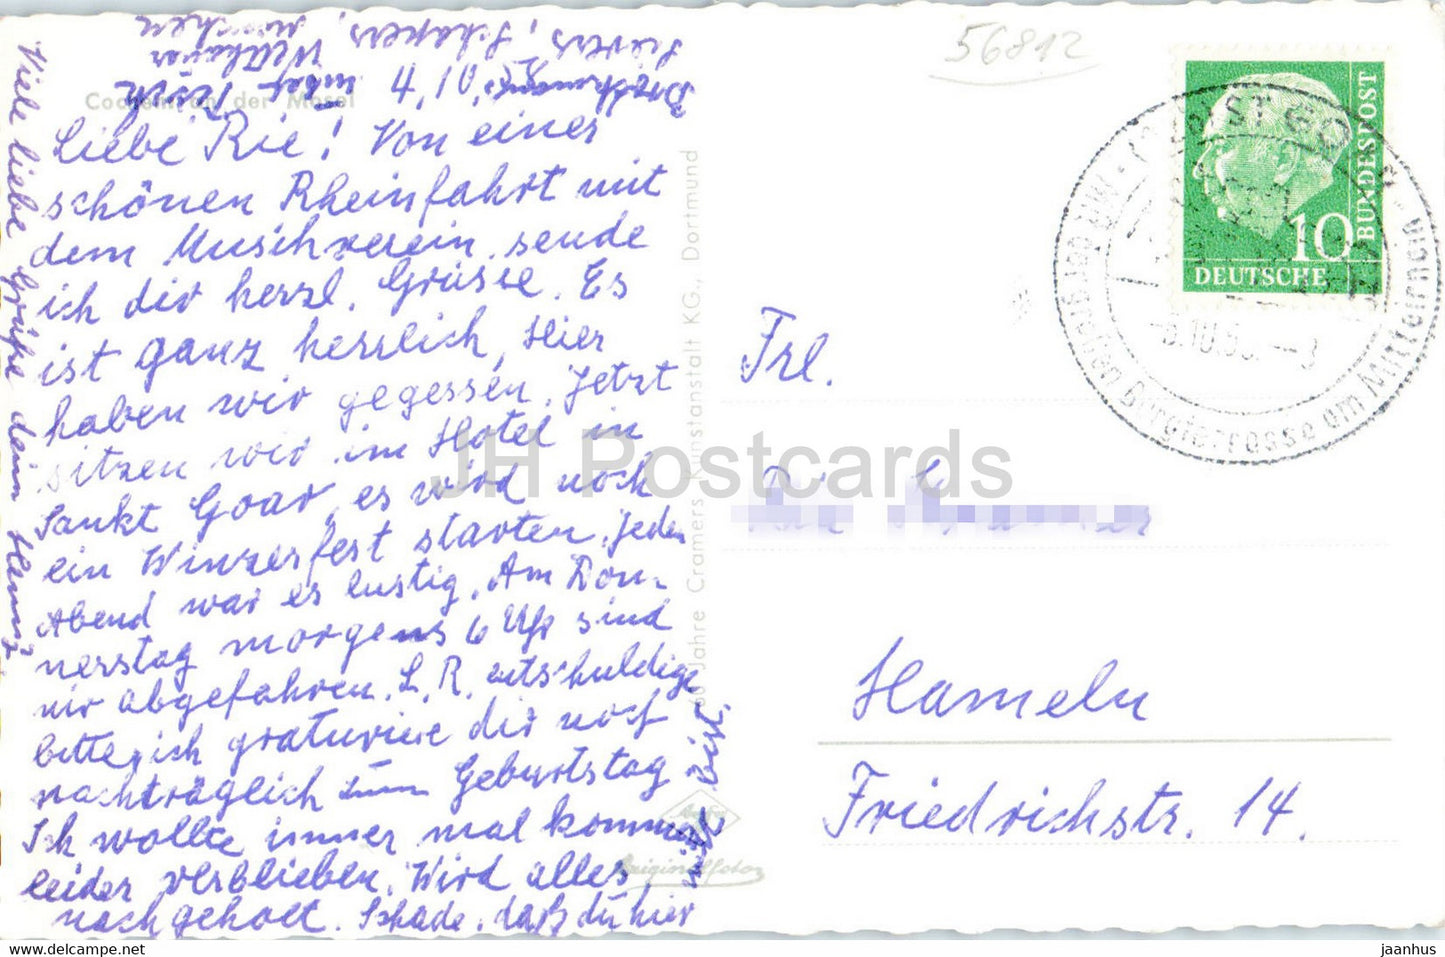 56812
Cochem an der Mosel
4.10.
Liebe Rie! Von einer
schönen Rheinfahrt mit
dem Musikverein sende
ich dir herzl. Grüsse. Es
ist ganz herrlich, Hier
haben wir gegessen. Jetzt
sitzen wir im Hotel in
Sankt Goar, es wird noch
ein Winzerfest starten. Jeden
Abend war es lustig. Am Don-
nerstag morgens 6 Uhr sind
wir abgefahren. L. R. entschuldige
bitte, ich gratuliere dir noch
nachträglich zum Geburtstag
Ich wollte immer mal kommen
leider verblieben. Wird alles
nachgeholt. Schade, daß du hier
nicht bist.
Viele liebe Grüße dein Heinz
60 Jahre Cramers Kunstanstalt KG., Dortmund
Originalfoto
DEUTSCHE
BUNDESPOST
10
ST GOAR
der großen Burgterrasse am Mittelrhein
Frl.
Hameln
Friedrichstr. 14.
JH Postcards
www.delcampe.net
jaanhus